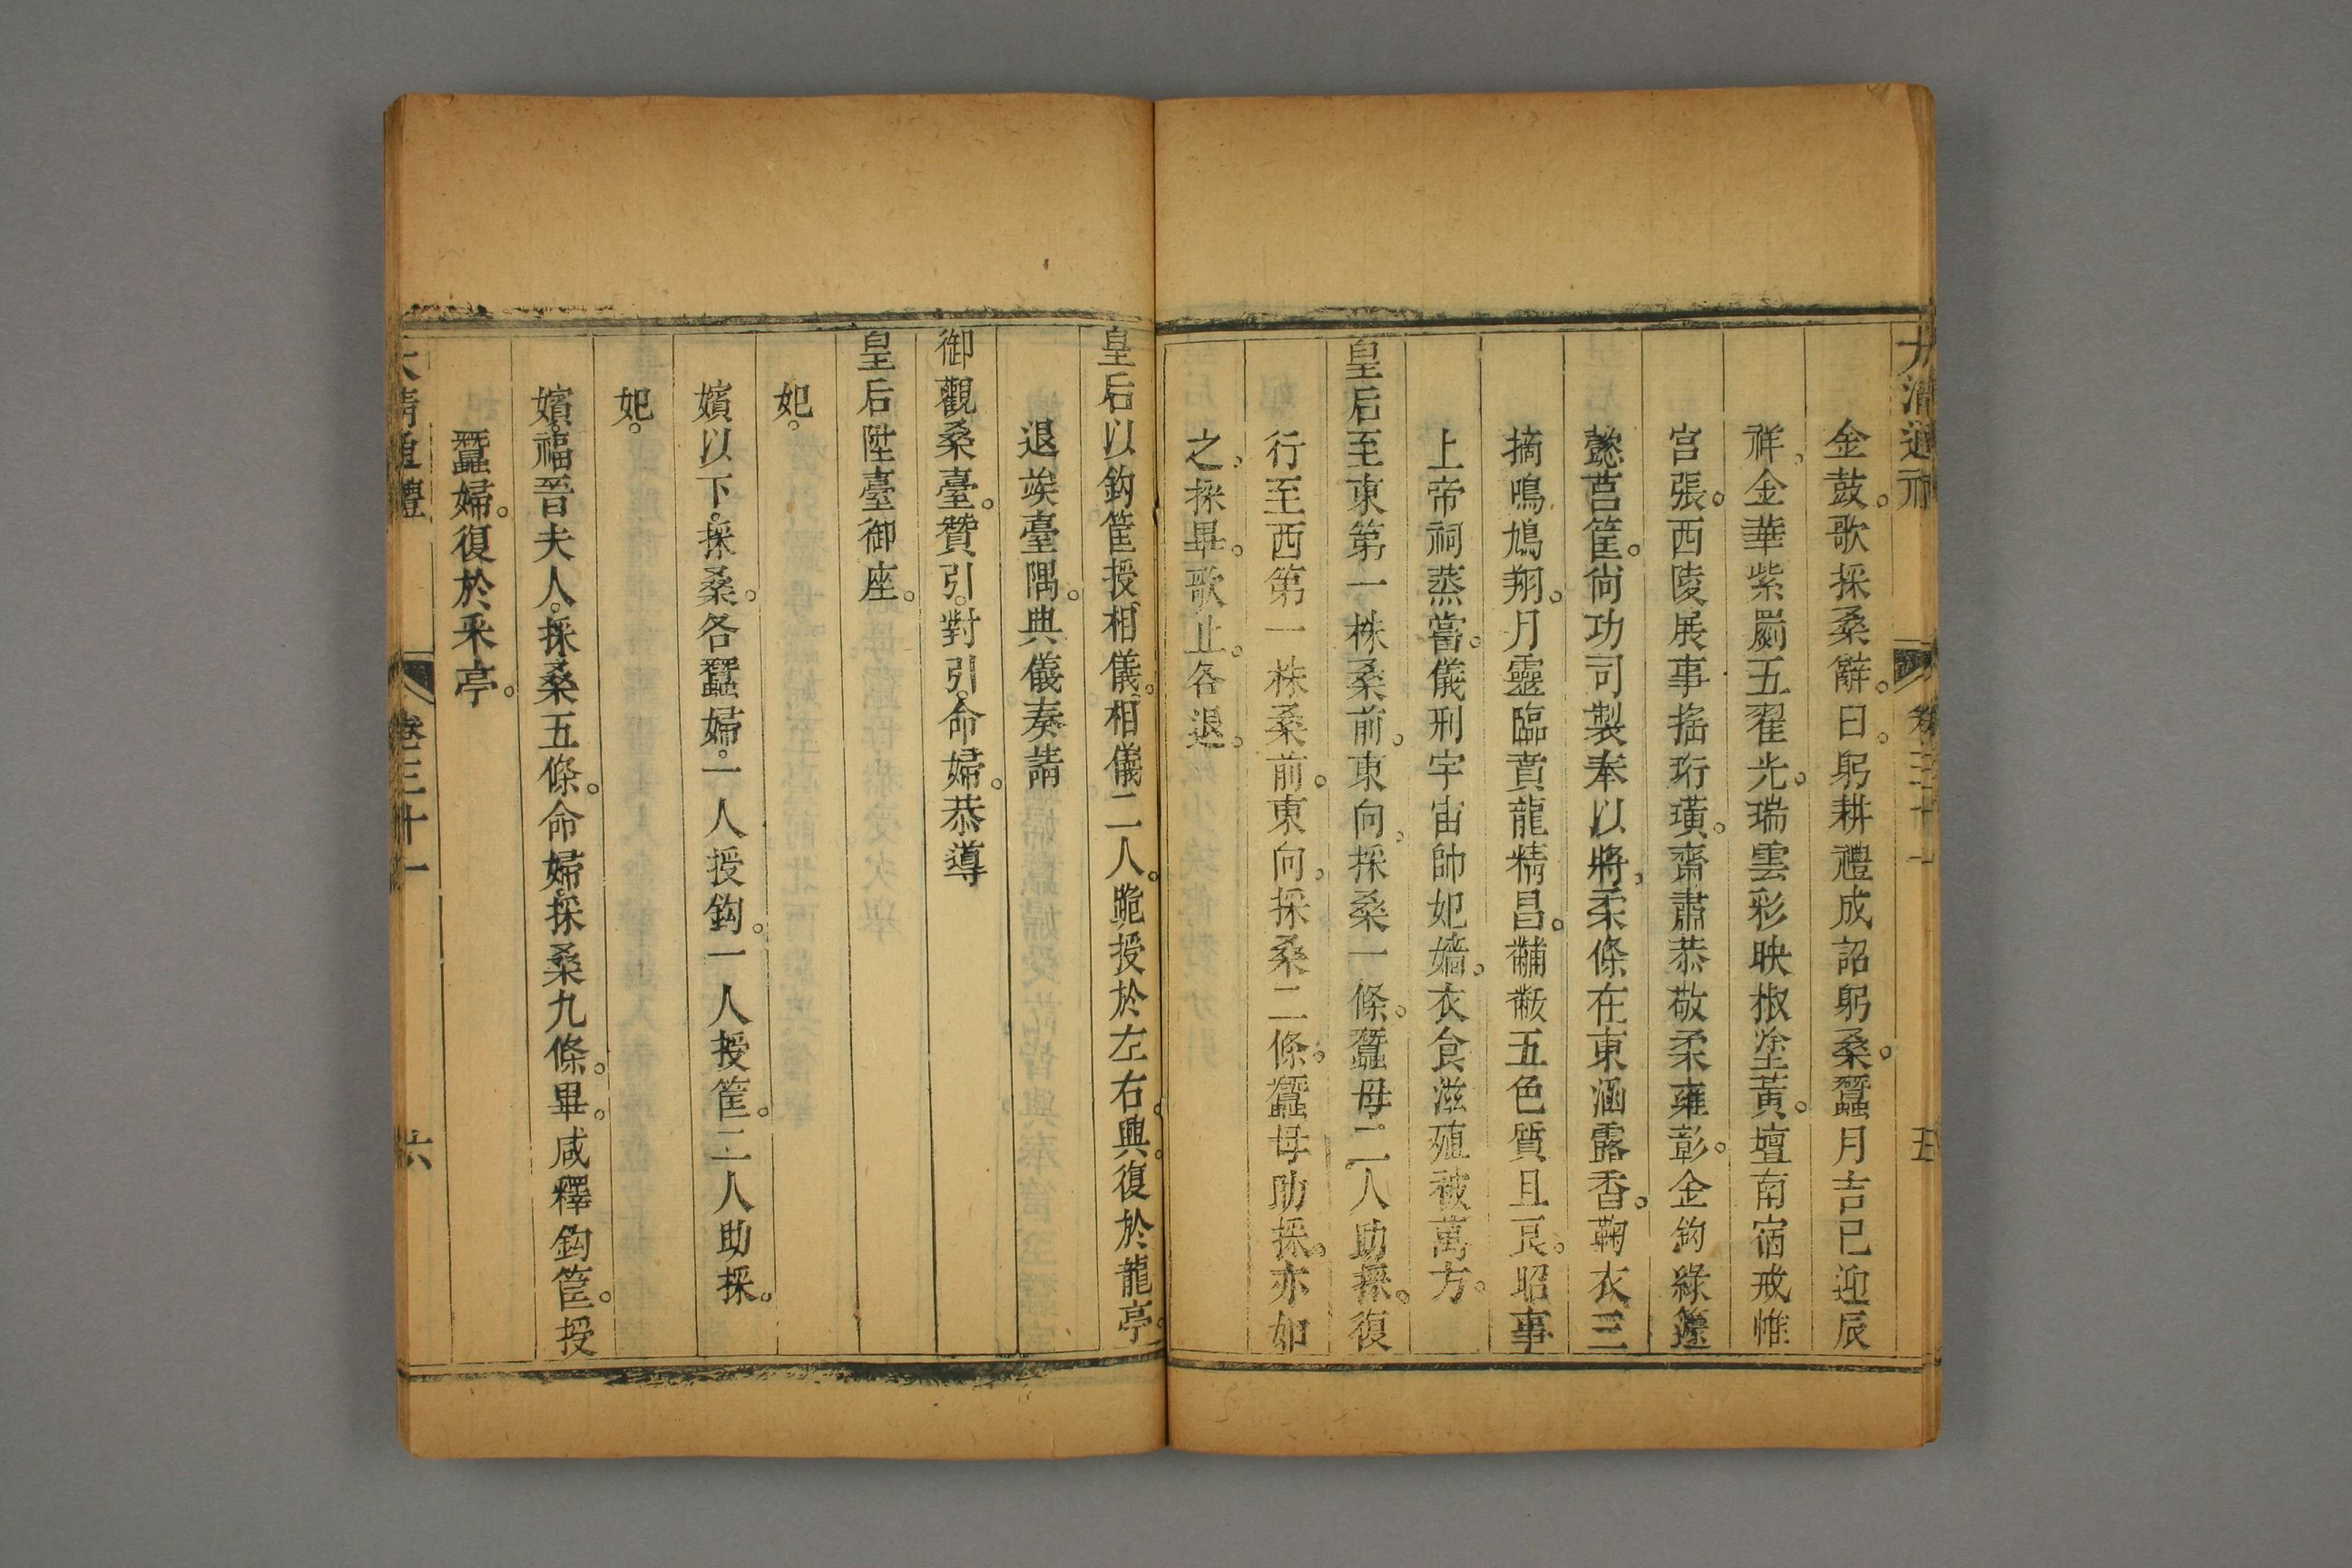 大清通禮 卷三十一 五
金鼓。歌採桑辭。曰。躬耕禮成詔躬桑。蠶月吉巳迎辰
祥。金華紫罽五翟光。瑞雲彩映椒塗黃。壇南宿戒惟
宮張。西陵展事搖珩璜。齋肅恭敬柔雍彰。金鉤綠籧
懿莒筐。尙功司製奉以將。柔條在東涵露香。鞠衣三
摘鳴鳩翔。月靈臨賁龍精昌。黼黻五色質且良。昭事
上帝祠蒸嘗。儀刑宇宙帥妃嬙。衣食滋殖被萬方。
皇后至東第一株桑前。東向。採桑一條。蠶母二人助採。復
行至西第一株桑前。東向。採桑二條。蠶母助採。亦如
之。採畢。歌止。各退。
皇后以鉤筐授相儀。相儀二人。跪授於左右。興。復於龍亭。
退竢臺隅。典儀奏請
御觀桑臺。贊引。對引。命婦。恭導
皇后陞臺御座。
妃。
嬪以下。採桑。各蠶婦。一人授鉤。一人授筐。二人助採。
妃。
嬪。福晉夫人。採桑五條。命婦。採桑九條。畢。咸釋鉤筐。授
蠶婦。復於采亭。
大清通禮 卷三十一 六